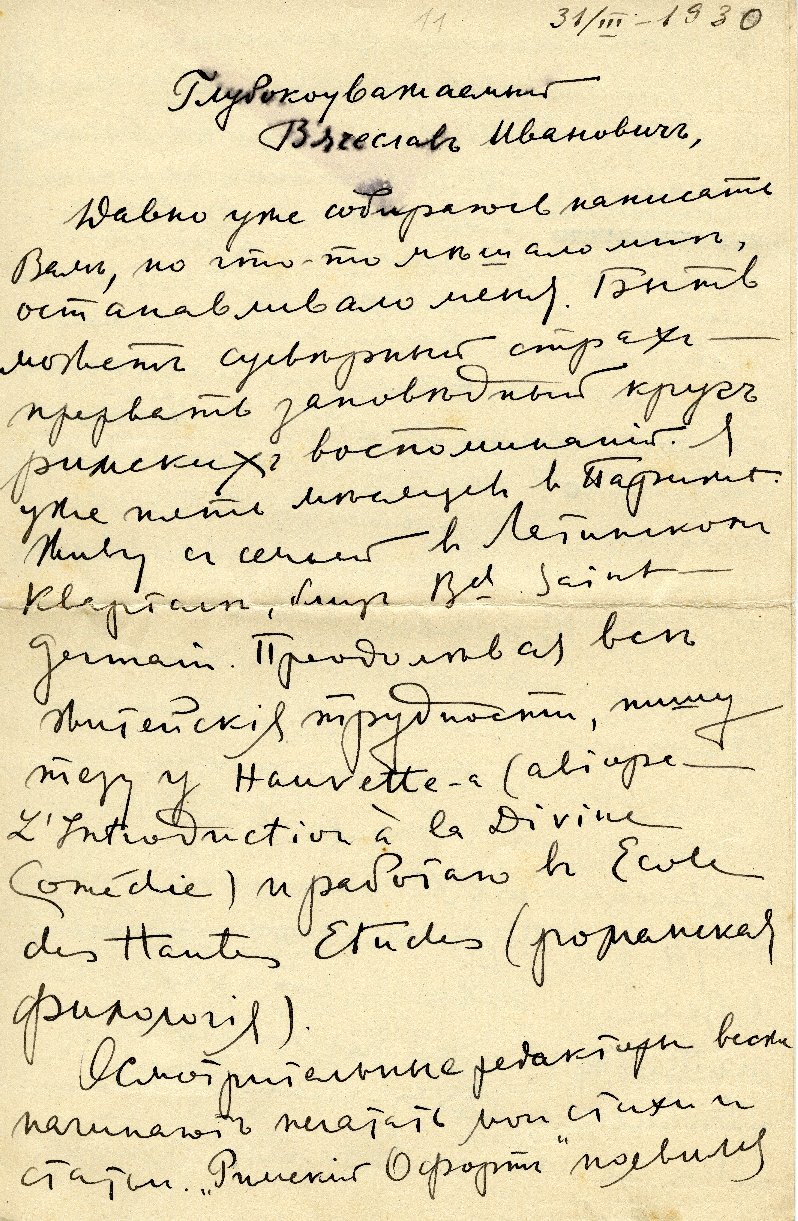 11
31/III–1930
Глубокоуважаемый
Вячеславъ Ивановичъ,
Давно уже собираюсь написать
Вамъ, но что-то мѣшало мнѣ,
останавливало меня. Быть
можетъ суевѣрный страхъ —
прервать заповѣдный кругъ
римскихъ воспоминаній. Я
уже пять мѣсяцевъ въ Парижѣ.
Живу съ семьей въ Латинскомъ
Кварталѣ, близъ Bd Saint-
Germain. Преодолѣвая всѣ
житейскія трудности, пишу
тезу у Hauvette-а (авторъ —
L'Introduction à la Divine
Comédie) и работаю въ Ecole
des Hautes Etudes (романская
филологія).
Осмотрительные редакторы
начинаютъ печатать мои стихи и
статьи. „Римскій Офортъ" появился